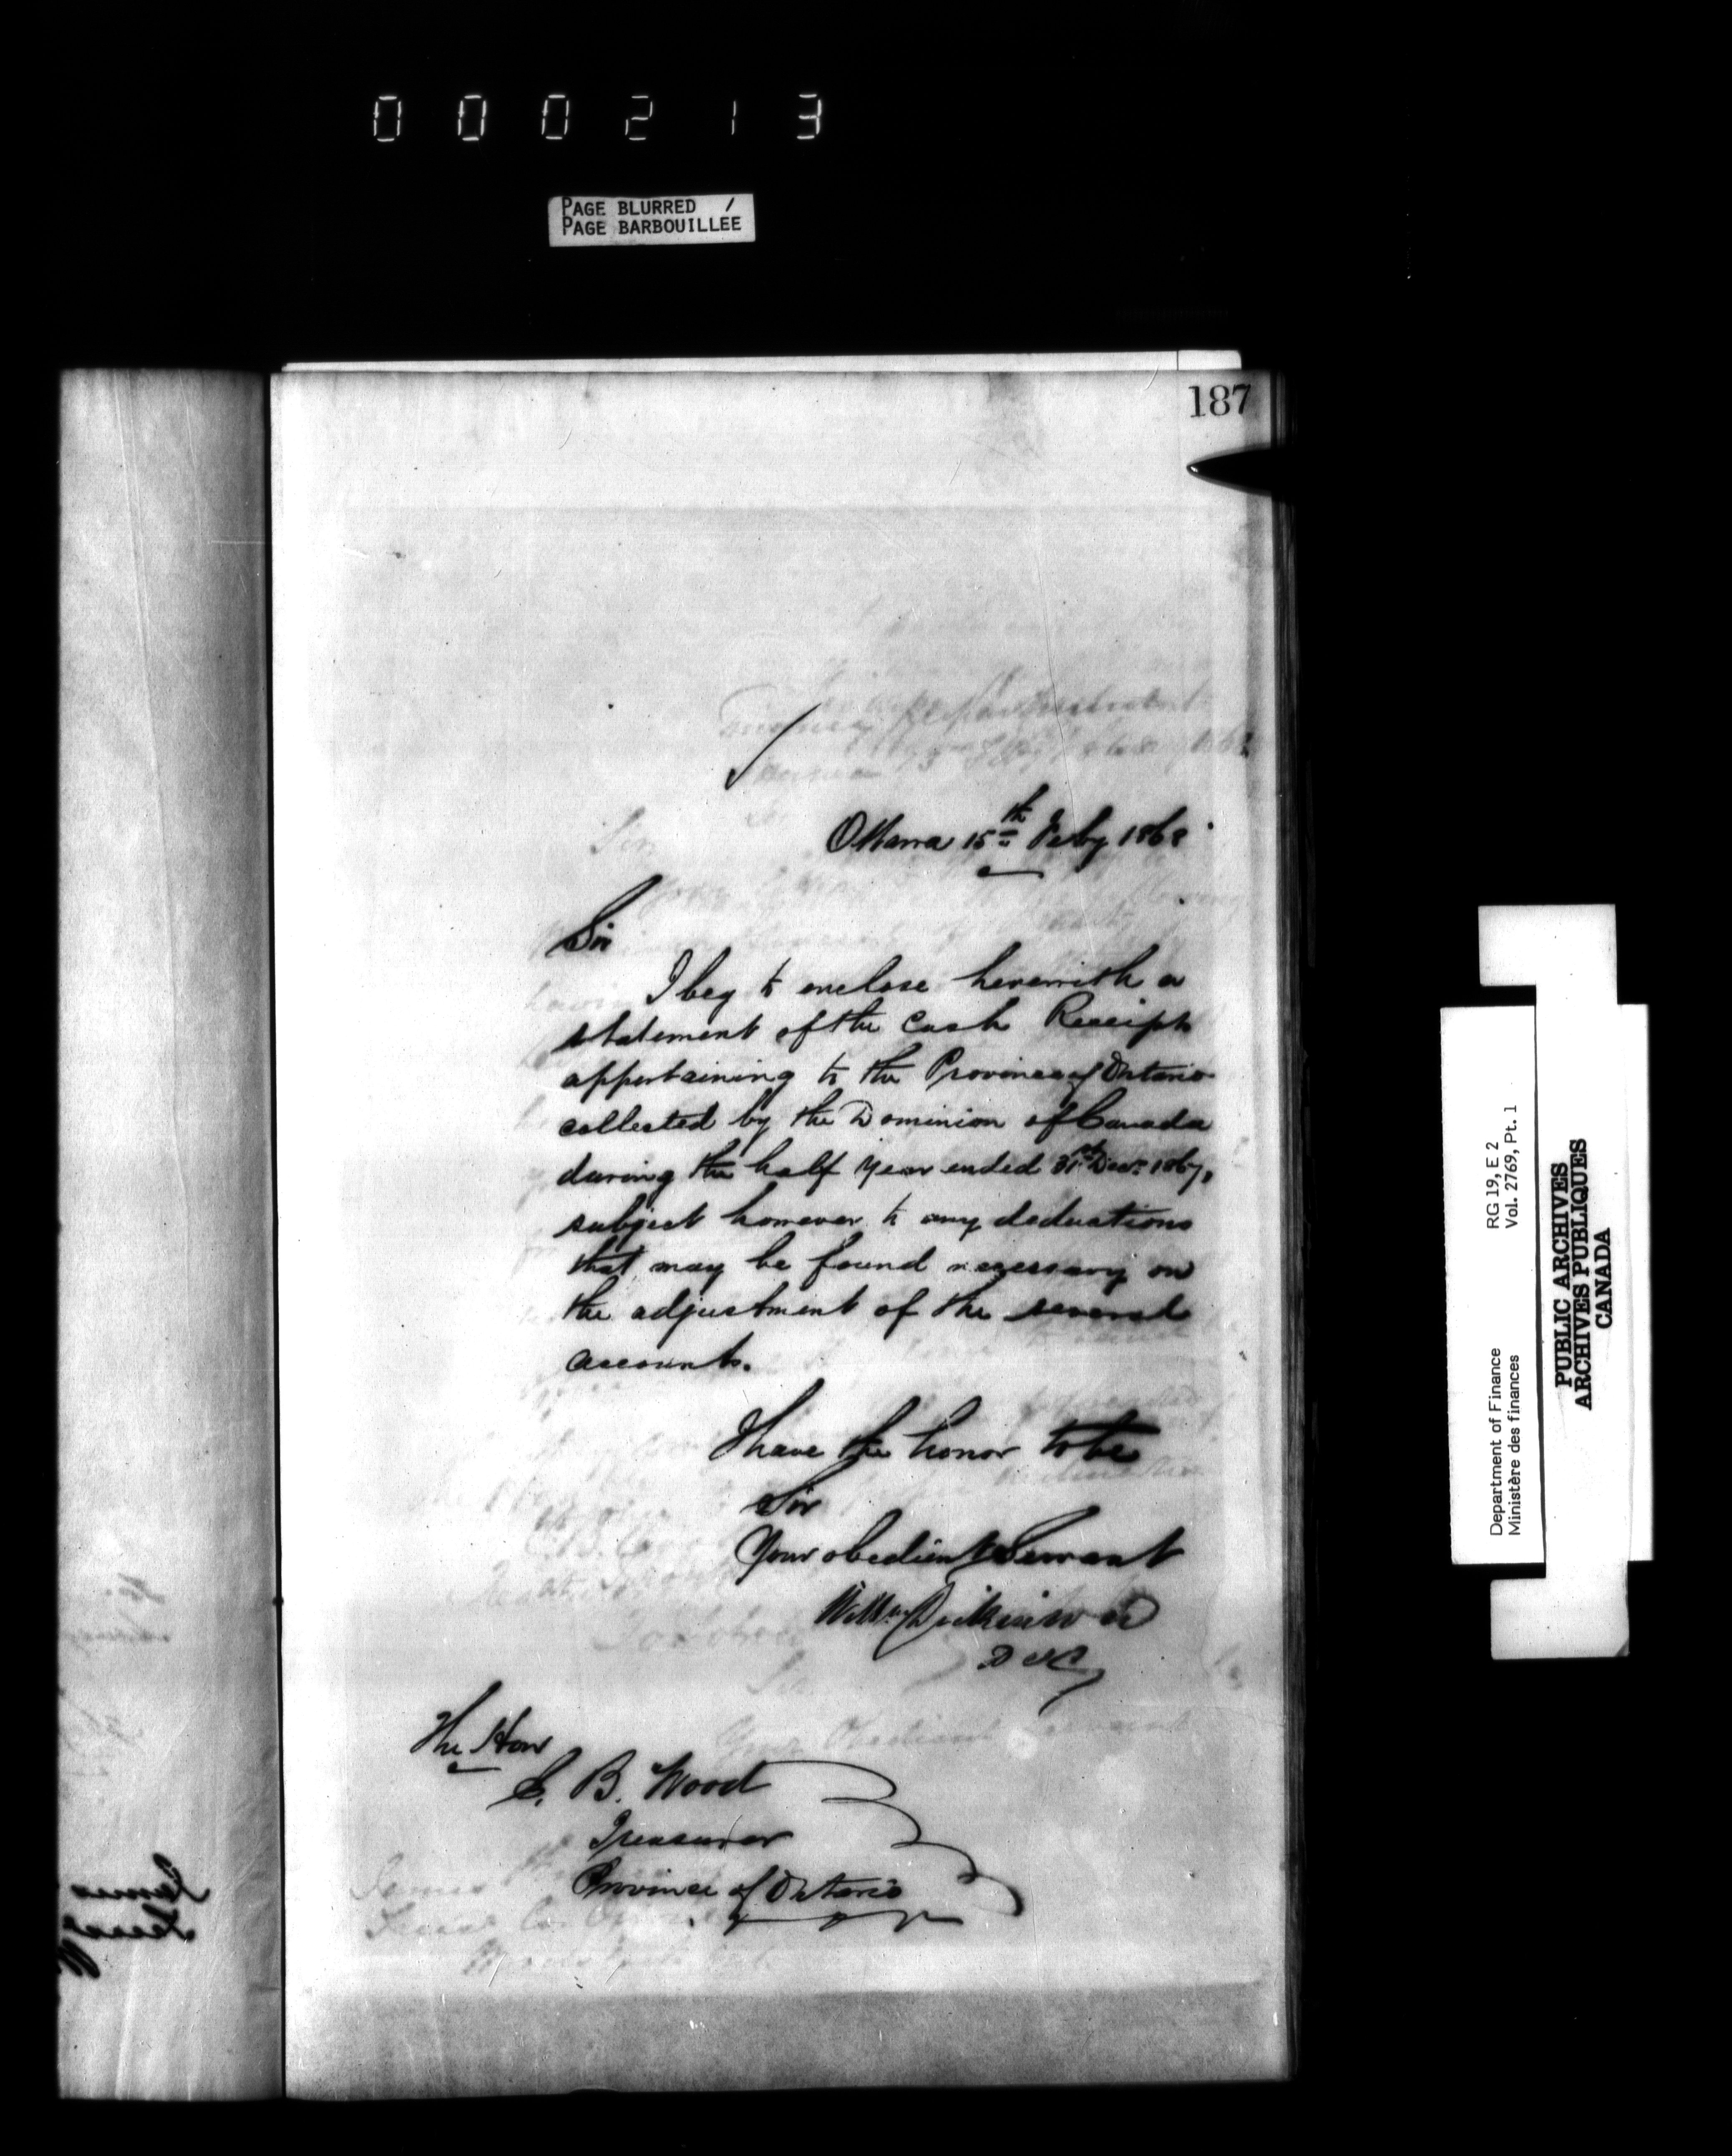 000213
PAGE BLURRED /
PAGE BARBOUILLEE
187
Ottawa 15th Feby 1868
Sir
I beg to enclose herewith a
statement of the Cash Receipts
appertaining to the Province of Ontario
collected by the Dominion of Canada
during the half year ended 31st Decr. 1867,
subject however to any deductions
that may be found necessary on
the adjustment of the several
accounts.
I have the honor to be
Sir
Your obedient Servant
Willm Dickinson
The Hon
E. B. Wood
Treasurer
Province of Ontario
Department of Finance RG 19, E 2
Ministère des finances Vol. 2769, Pt. 1
PUBLIC ARCHIVES
ARCHIVES PUBLIQUES
CANADA